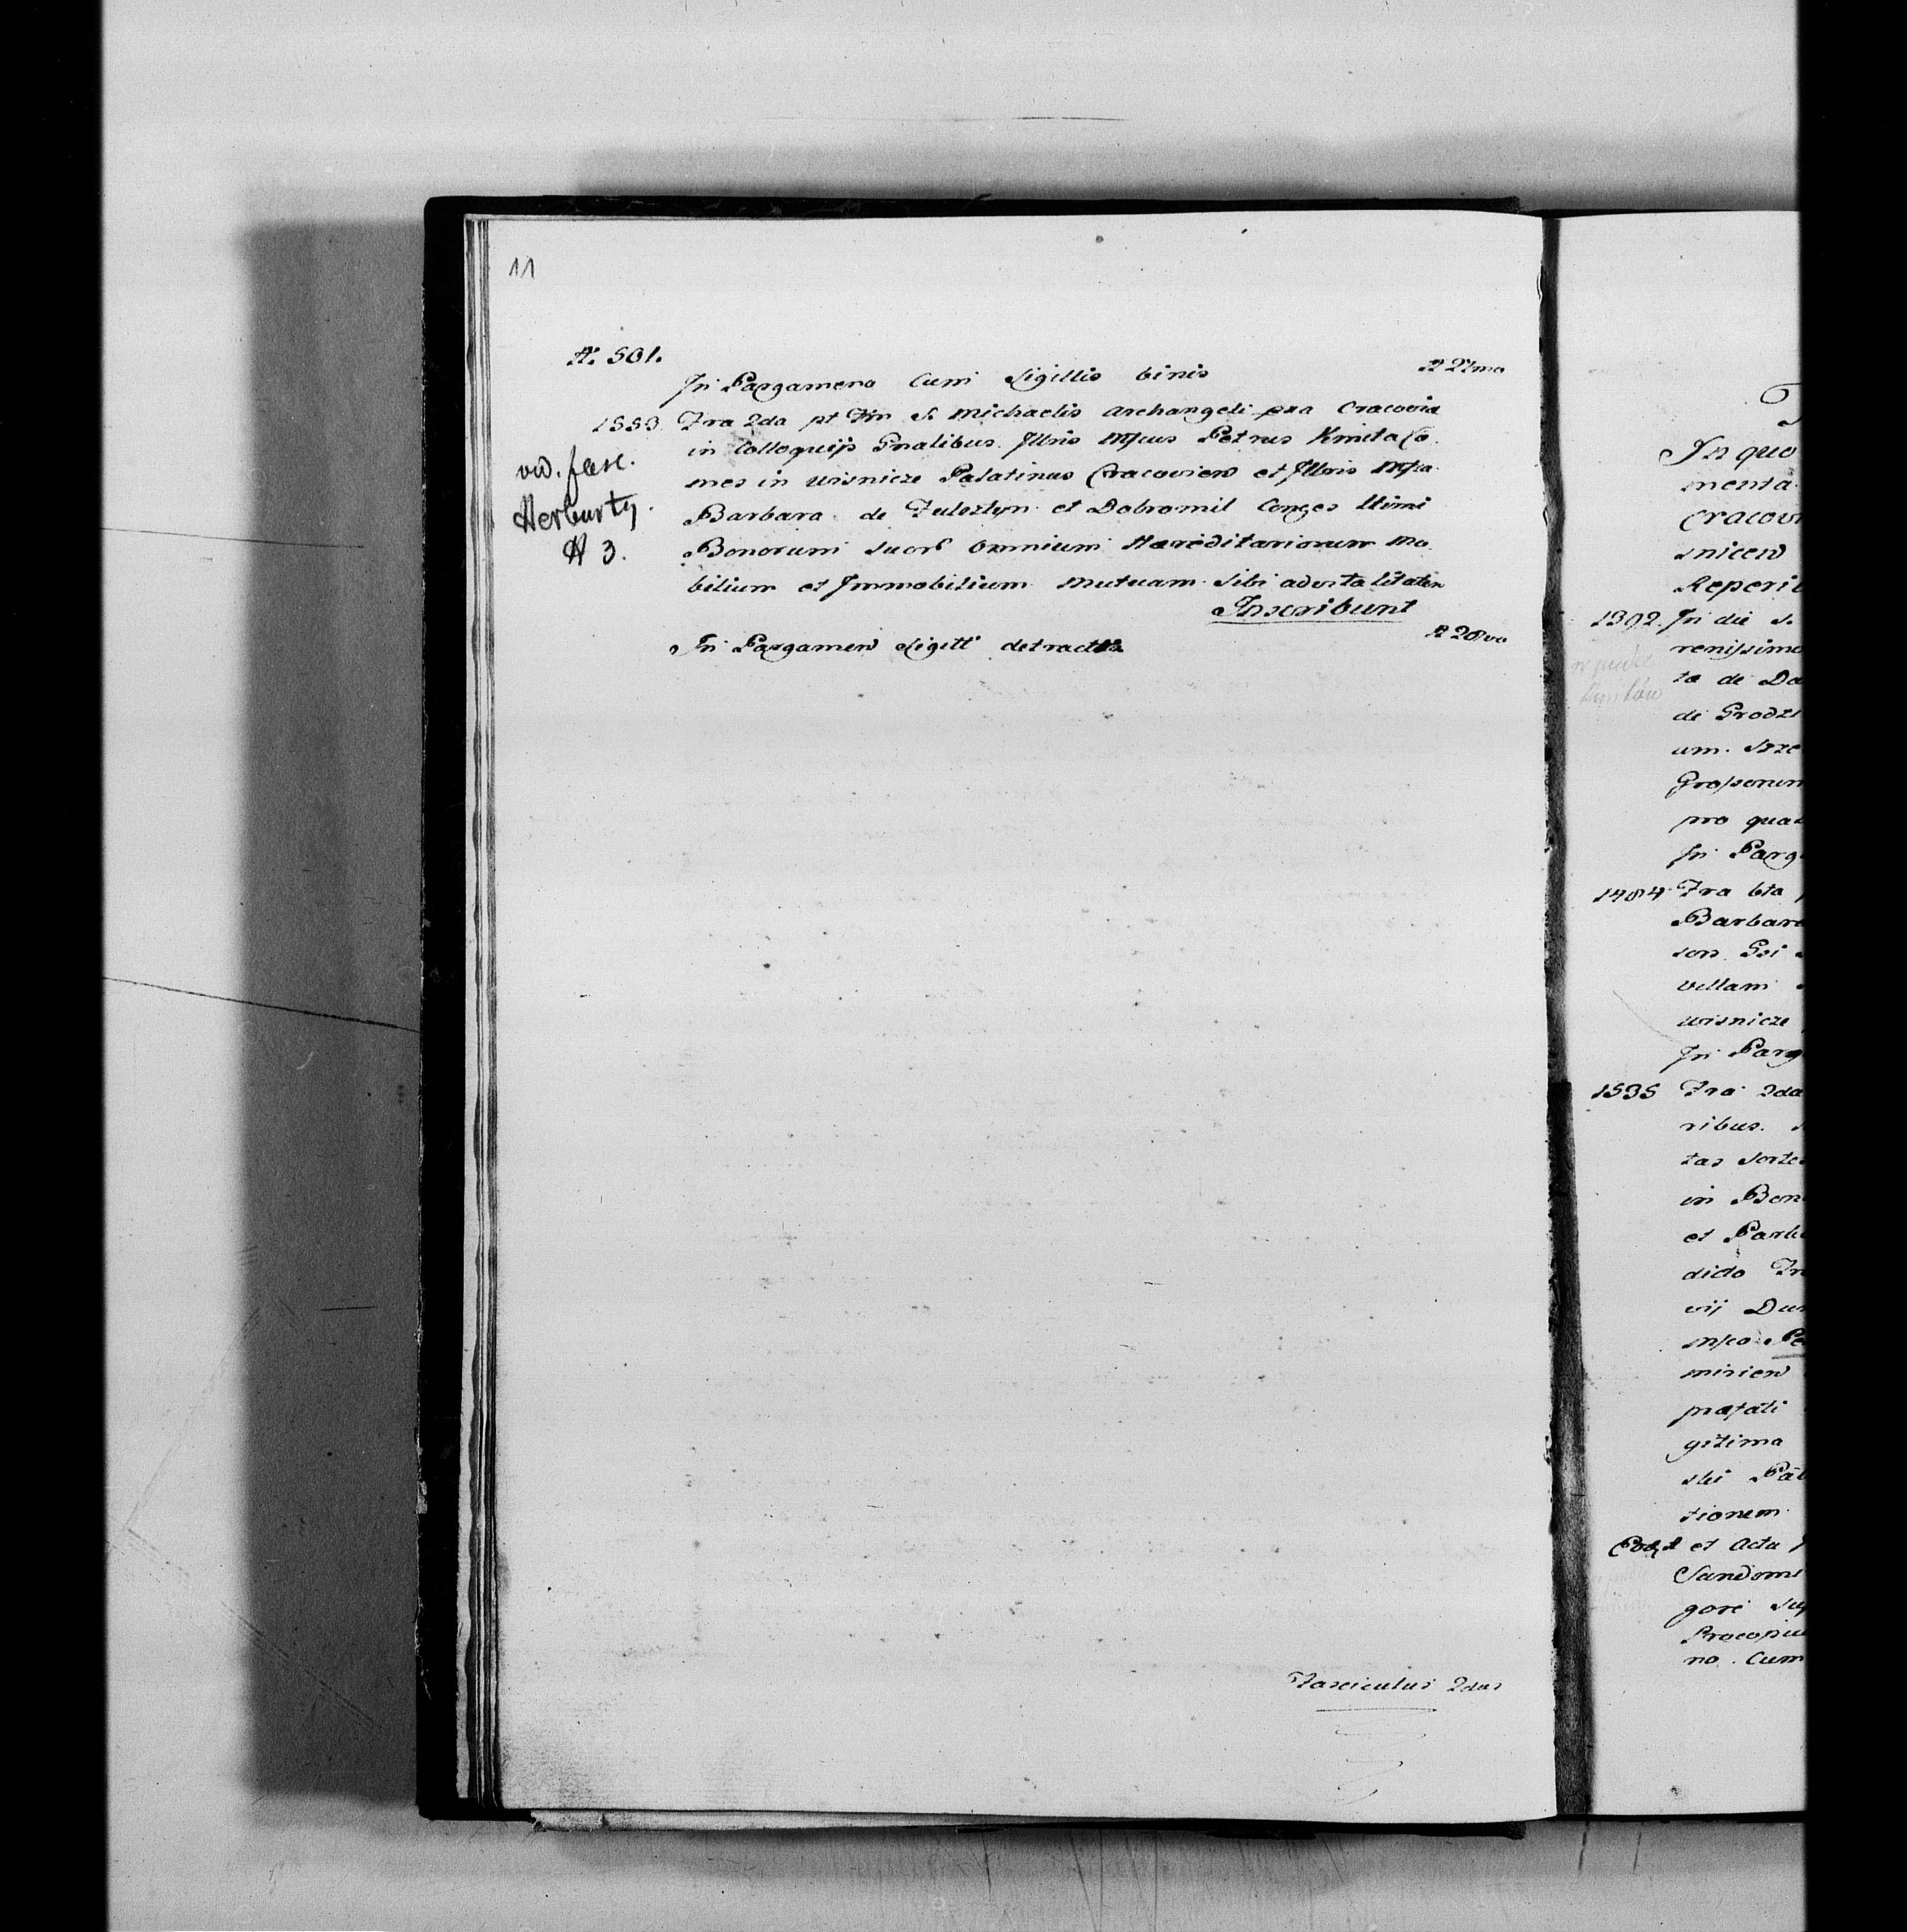 11
A. 501.
In Pargameno Cum Sigillis binis
N 27mo
1553. Fra 2da pt Fm S. Michaelis Archangeli pxa Cracoviæ
in Colloquijs Gnalibus. Jllris Mfcus Petrus Kmita Co.
mes in Wisnicze Palatinus Cracovien et Jllris Mfca
Barbara de Fulsztyn et Dobromil Conges llimi
Bonorum Suor omnium Hæreditariorum Mo
bilium et Jmmobilium Mutuam Sibi advitalitatem
Jnscribunt
In Pargamen Sigill detractis
N 28vo
vid. fasc.
Herburty.
N 3.
Fasciculus 2dus
In quo
menta
Cracovi
snicen
Reperi
1392. In die S.
renissimo
ta de Da
de Grodzi
um. Sze
Grossorum
pro qua
In Parg
1484 Fra 6ta
Barbaræ
son Gsi
Villam
Wisnicze
In Parg
1535 Fra 2da
ribus.
tas Sorte
in Bon
et Parb
dicto
vij Du
Mfco Pe
mirien
præfati
gitima
ski Pal
tionem
et Acta
Sandomi
gore Su
Procopiu
no. Cum